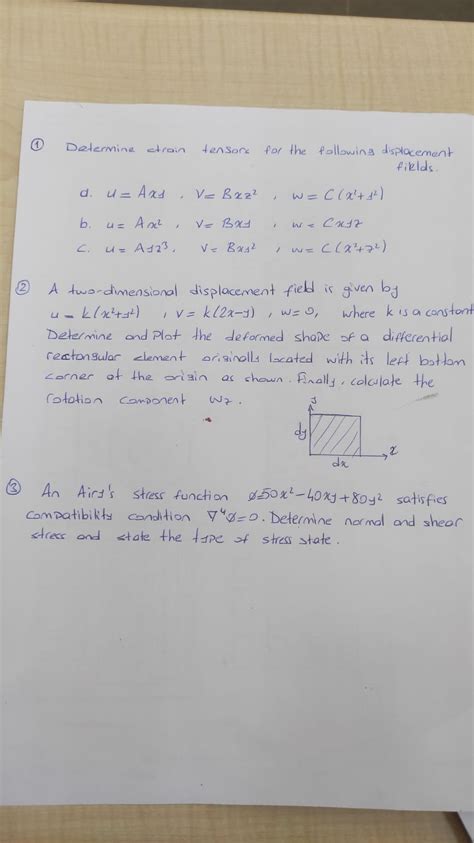 ① Determine strain tensors for the following displacement
fields.
a. u = Axy , v = Bxz² , w = C(x²+y²)
b. u = Ax² , v = Bxy , w = Cxyz
c. u = Ayz³, v = Bxy² , w = C(x²+z²)
② A two-dimensional displacement field is given by
u = k(x²+y²) , v = k(2x-y) , w = 0, where k is a constant
Determine and Plot the deformed shape of a differential
rectangular element originally located with its left bottom
corner at the origin as shown. Finally, calculate the
rotation component wz.
y
dy
x
dx
③ An Airy's stress function ø=50x²-40xy+80y² satisfies
compatibility condition ∇⁴ø=0. Determine normal and shear
stress and state the type of stress state.